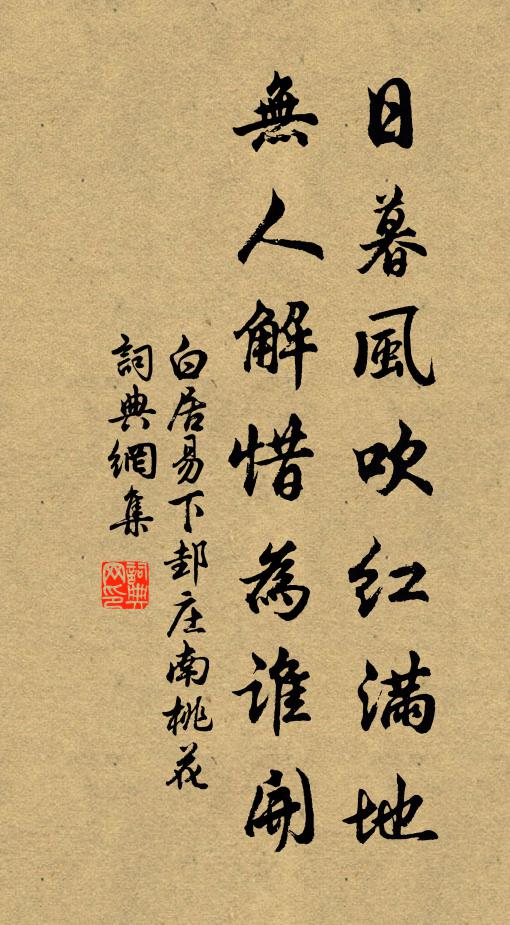 日暮風吹紅滿地
無人解惜為誰開
白居易下邽庄南桃花
詞典網集
詞典
网印